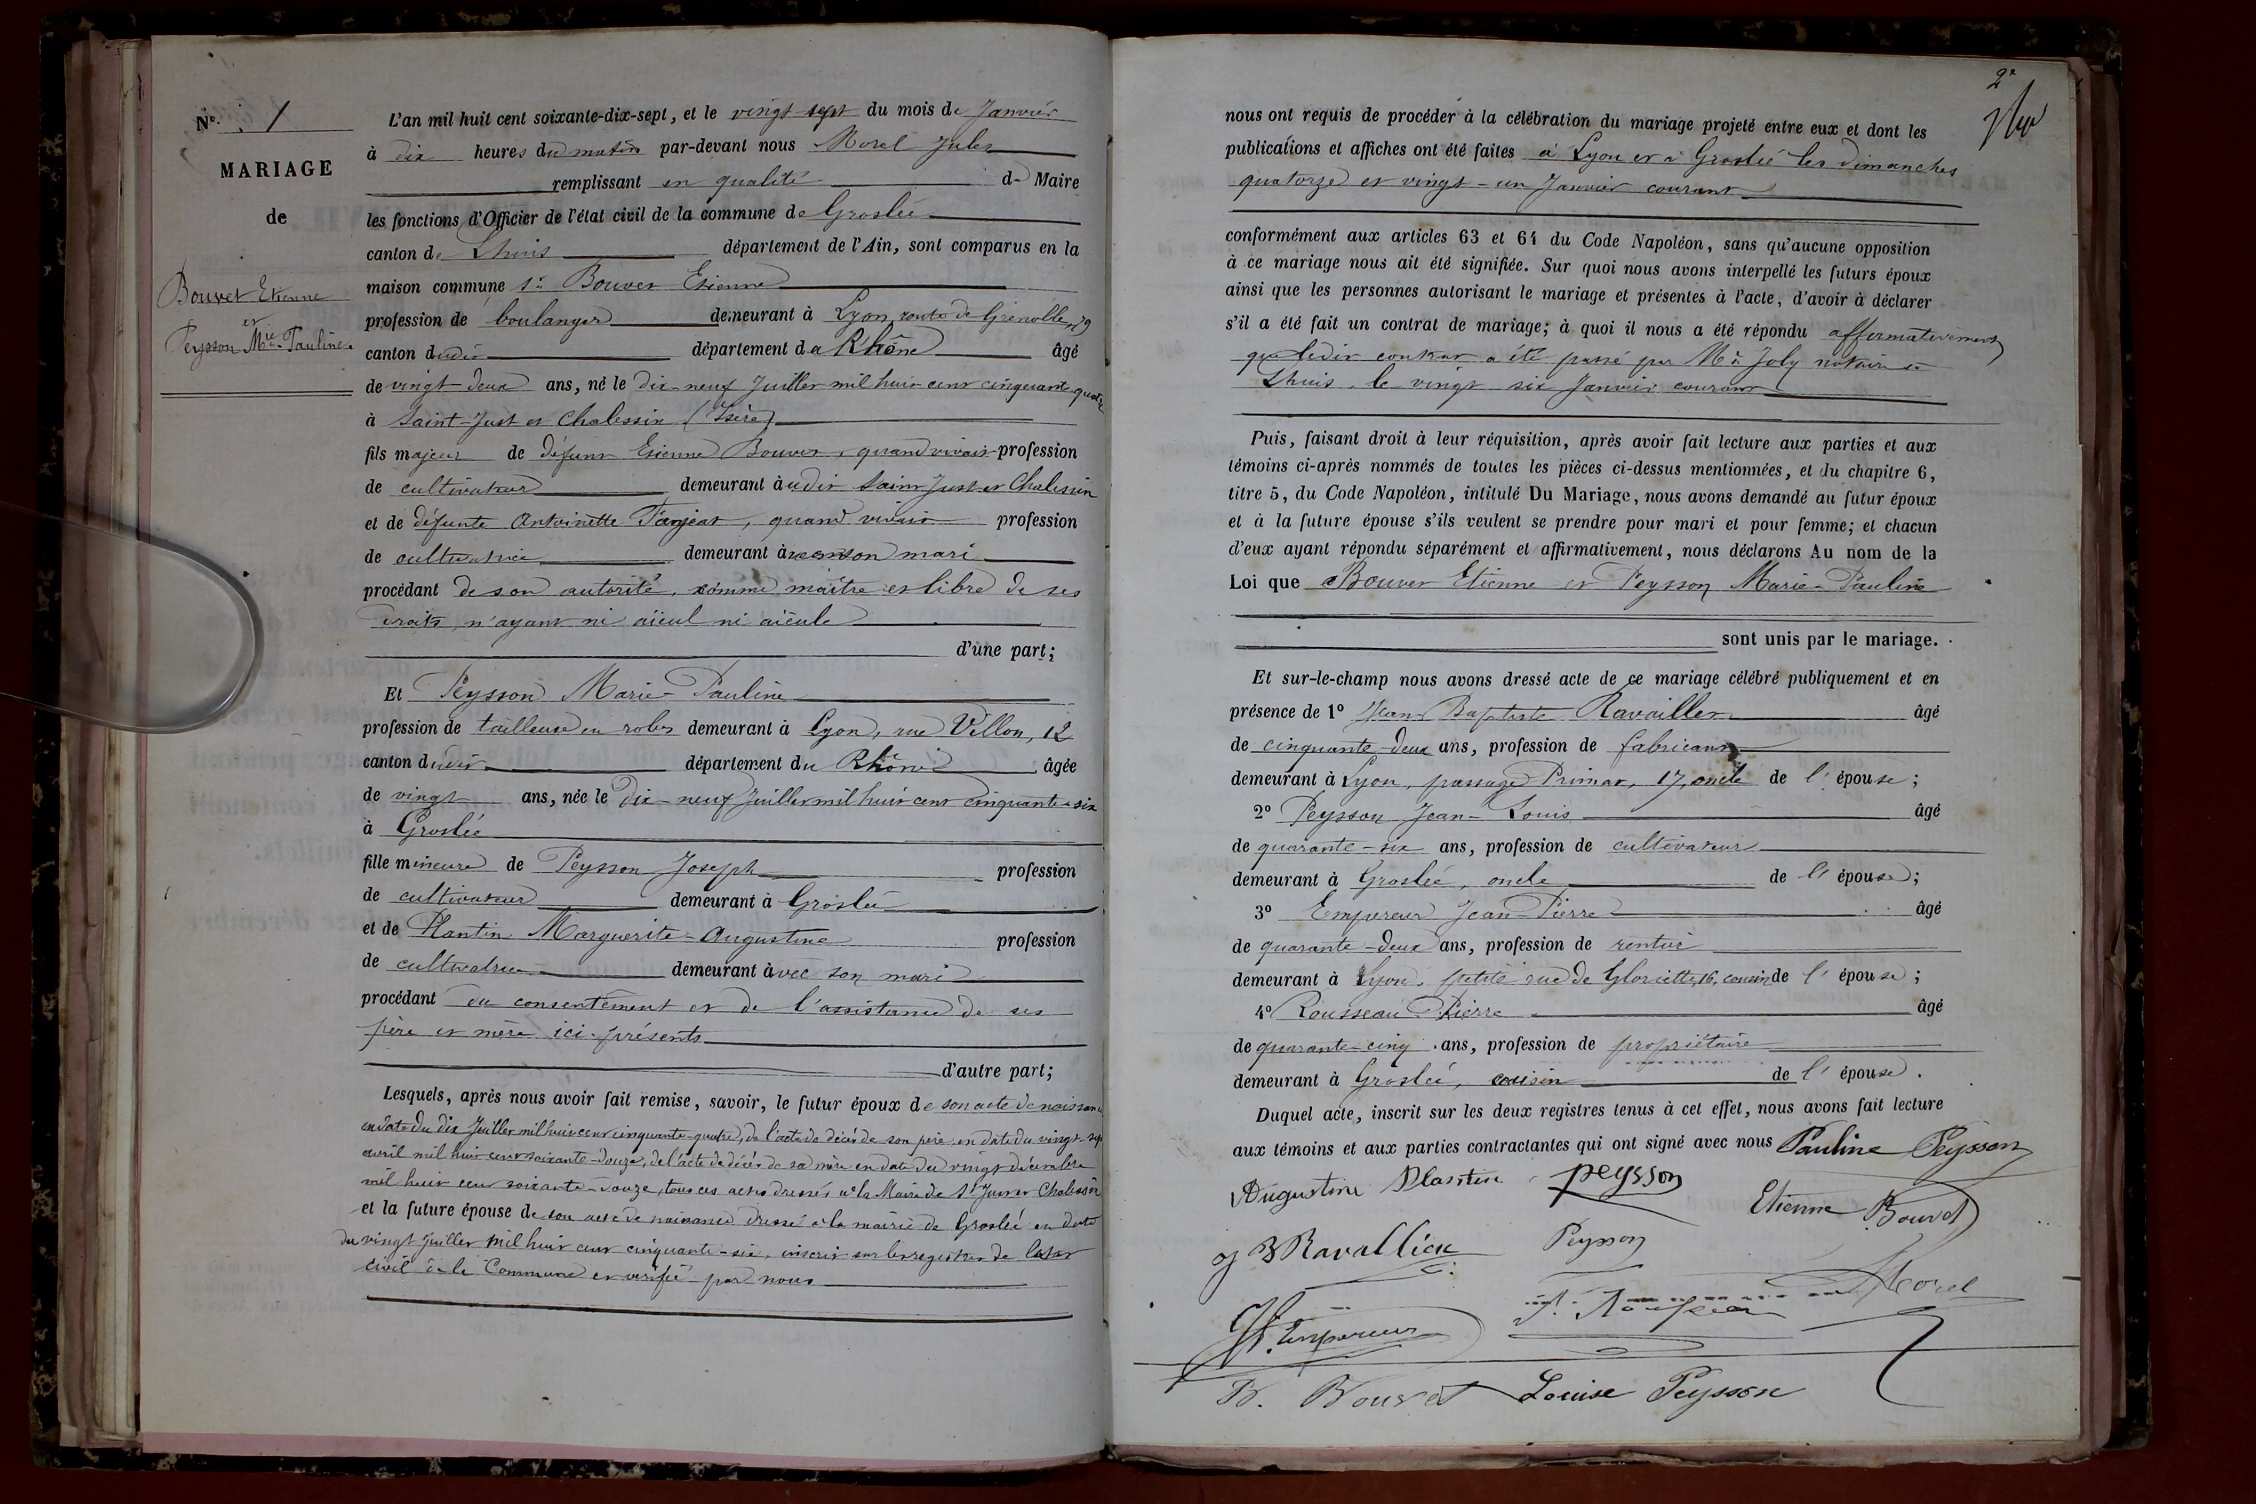 N° 1
MARIAGE
de
Bouvet Etienne
et
Peysson Mie Pauline
L'an mil huit cent soixante-dix-sept, et le vingt sept du mois de Janvier
à dix heures du matin par-devant nous Morel Jules
remplissant en qualité de Maire
les fonctions d'Officier de l'état civil de la commune de Groslée
canton de Lhuis département de l'Ain, sont comparus en la
maison commune 1° Bouvet Etienne
profession de boulanger demeurant à Lyon, route de Grenoble, 79
canton dudit département du Rhône âgé
de vingt-deux ans, né le dix-neuf Juillet mil huit cent cinquante quatre
à Saint-Just et Chalessin (Isère)
fils majeur de défunt Etienne Bouvet, quand vivait profession
de cultivateur demeurant audit Saint Just et Chalessin
et de défunte Antoinette Fargeat, quand vivait profession
de cultivatrice demeurant avec son mari
procédant de son autorité, comme maître et libre de ses
droits, n'ayant ni aïeul ni aïeule
d'une part;
Et Peysson Marie-Pauline
profession de tailleuse en robes demeurant à Lyon, rue Villon, 12
canton dudit département du Rhône âgée
de vingt ans, née le dix-neuf Juillet mil huit cent cinquante-six
à Groslée
fille mineure de Peysson Joseph profession
de cultivateur demeurant à Groslée
et de Plantin Marguerite-Augustine profession
de cultivatrice demeurant avec son mari
procédant du consentement et de l'assistance de ses
père et mère ici présents
d'autre part;
Lesquels, après nous avoir fait remise, savoir, le futur époux de son acte de naissance
en date du dix Juillet mil huit cent cinquante-quatre, de l'acte de décès de son père en date du vingt-sept
avril mil huit cent soixante-douze, de l'acte de décès de sa mère en date du vingt décembre
mil huit cent soixante-douze, tous ces actes dressés à la Mairie de St Just et Chalessin
et la future épouse de son acte de naissance dressé à la mairie de Groslée en date
du vingt Juillet mil huit cent cinquante-six, inscrit sur les registres de l'état
civil de la Commune et vérifié par nous
2e
nous ont requis de procéder à la célébration du mariage projeté entre eux et dont les
publications et affiches ont été faites à Lyon et à Groslée les dimanches
quatorze et vingt-un Janvier courant
conformément aux articles 63 et 64 du Code Napoléon, sans qu'aucune opposition
à ce mariage nous ait été signifiée. Sur quoi nous avons interpellé les futurs époux
ainsi que les personnes autorisant le mariage et présentes à l'acte, d'avoir à déclarer
s'il a été fait un contrat de mariage; à quoi il nous a été répondu affirmativement
que ledit contrat a été passé par Me Joly notaire à
Lhuis, le vingt six Janvier courant
Puis, faisant droit à leur réquisition, après avoir fait lecture aux parties et aux
témoins ci-après nommés de toutes les pièces ci-dessus mentionnées, et du chapitre 6,
titre 5, du Code Napoléon, intitulé Du Mariage, nous avons demandé au futur époux
et à la future épouse s'ils veulent se prendre pour mari et pour femme; et chacun
d'eux ayant répondu séparément et affirmativement, nous déclarons Au nom de la
Loi que Bouvet Etienne et Peysson Marie-Pauline
sont unis par le mariage.
Et sur-le-champ nous avons dressé acte de ce mariage célébré publiquement et en
présence de 1° Jean Baptiste Ravaillier âgé
de cinquante-deux ans, profession de fabricant
demeurant à Lyon, passage Primat, 17, oncle de l'épouse;
2° Peysson Jean-Louis âgé
de quarante-six ans, profession de cultivateur
demeurant à Groslée, oncle de l'épouse;
3° Empereur Jean-Pierre âgé
de quarante-deux ans, profession de rentier
demeurant à Lyon, petite rue de Gloriette, 16, cousin de l'épouse;
4° Rousseau Pierre âgé
de quarante-cinq ans, profession de propriétaire
demeurant à Groslée, cousin de l'épouse.
Duquel acte, inscrit sur les deux registres tenus à cet effet, nous avons fait lecture
aux témoins et aux parties contractantes qui ont signé avec nous Pauline Peysson
Augustine Plantin peysson
Etienne Bouvet
J B Ravallier Peysson
Morel
Empereur
Bouvet Louise Peysson